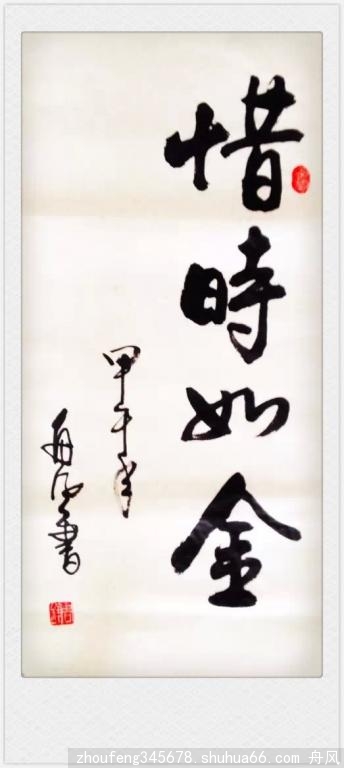 惜時如金
甲午年
舟风書
zhoufeng345678.shuhua66.com 舟风